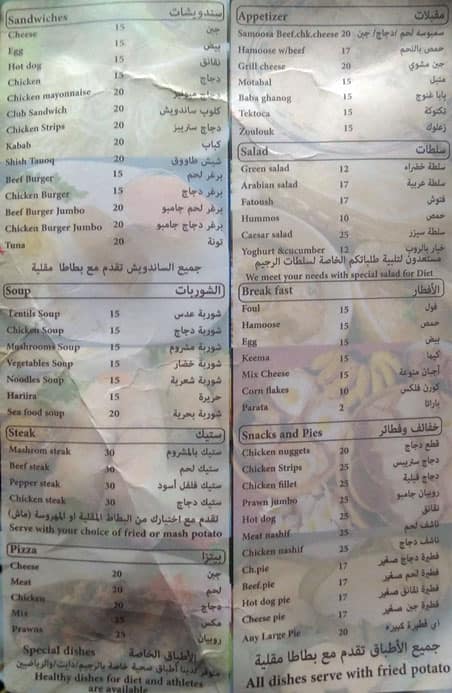 Sandwiches سندويشات
Cheese 15 جبن
Egg 15 بيض
Hot dog 15 نقانق
Chicken 15 دجاج
Chicken mayonnaise 20 دجاج ميونيز
Club Sandwich 20 كلوب ساندويش
Chicken Strips 20 دجاج ستريبز
Kabab 20 كباب
Shish Tauoq 20 شيش طاووق
Beef Burger 15 برغر لحم
Chicken Burger 15 برغر دجاج
Beef Burger Jumbo 20 برغر لحم جامبو
Chicken Burger Jumbo 20 برغر دجاج جامبو
Tuna 20 تونة
جميع الساندويش تقدم مع بطاطا مقلية
Soup الشوربات
Lentils Soup 15 شوربة عدس
Chicken Soup 15 شوربة دجاج
Mushrooms Soup 15 شوربة مشروم
Vegetables Soup 15 شوربة خضار
Noodles Soup 15 شوربة شعرية
Hariira 15 حريرة
Sea food soup 20 شوربة بحرية
Steak ستيك
Mashrom steak 30 ستيك بالمشروم
Beef steak 30 ستيك لحم
Pepper steak 30 ستيك فلفل أسود
Chicken steak 30 ستيك دجاج
تقدم مع اختيارك من البطاط المقلية او المهروسة (ماش)
Serve with your choice of fried or mash potato
Pizza بيتزا
Cheese 20 جبن
Meat 20 لحم
Chicken 20 دجاج
Mix 25 مكس
Prawns 25 روبيان
Special dishes الأطباق الخاصة
متوفر لدينا أطباق صحية خاصة بالرجيم/دايت/والرياضيين
Healthy dishes for diet and athletes
are available
Appetizer مقبلات
Samoosa Beef.chk.cheese 20 سمبوسه لحم /دجاج/ جبن
Hamoose w/beef 17 حمص بالنحم
Grill cheese 20 جبن مشوي
Motabal 15 متبل
Baba ghanog 15 بابا غنوج
Tektoca 15 تكتوكة
Zoulouk 15 زعلوك
Salad سلطات
Green salad 12 سلطة خضراء
Arabian salad 17 سلطة عربية
Fatoush 17 فتوش
Hummos 10 حمص
Caesar salad 25 سلطة سيزر
Yoghurt &cucumber 12 خيار بالروب
مستعدون لتلبية طلباتكم الخاصة لسلطات الرجيم
We meet your needs with special salad for Diet
Break fast الأفطار
Foul 15 فول
Hamoose 15 حمص
Egg 15 بيض
Keema 15 كيما
Mix Cheese 15 أجبان منوعة
Corn flakes 10 كورن فلكس
Parata 2 باراتا
Snacks and Pies خفائف وفطائر
Chicken nuggets 20 قطع دجاج
Chicken Strips 25 دجاج ستريبس
Chicken fillet 25 دجاج فيلية
Prawn jumbo 25 روبيان جامبو
Hot dog 25 نقانق
Meat nashif 25 ناشف لحم
Chicken nashif 25 ناشف دجاج
Ch.pie 17 فطيرة دجاج صغير
Beef.pie 17 فطيرة لحم صغير
Hot dog pie 17 فطيرة نقانق صغير
Cheese pie 17 فطيرة جبن صغير
Any Large Pie 20 أي فطيرة كبيره
جميع الأطباق تقدم مع بطاطا مقلية
All dishes serve with fried potato